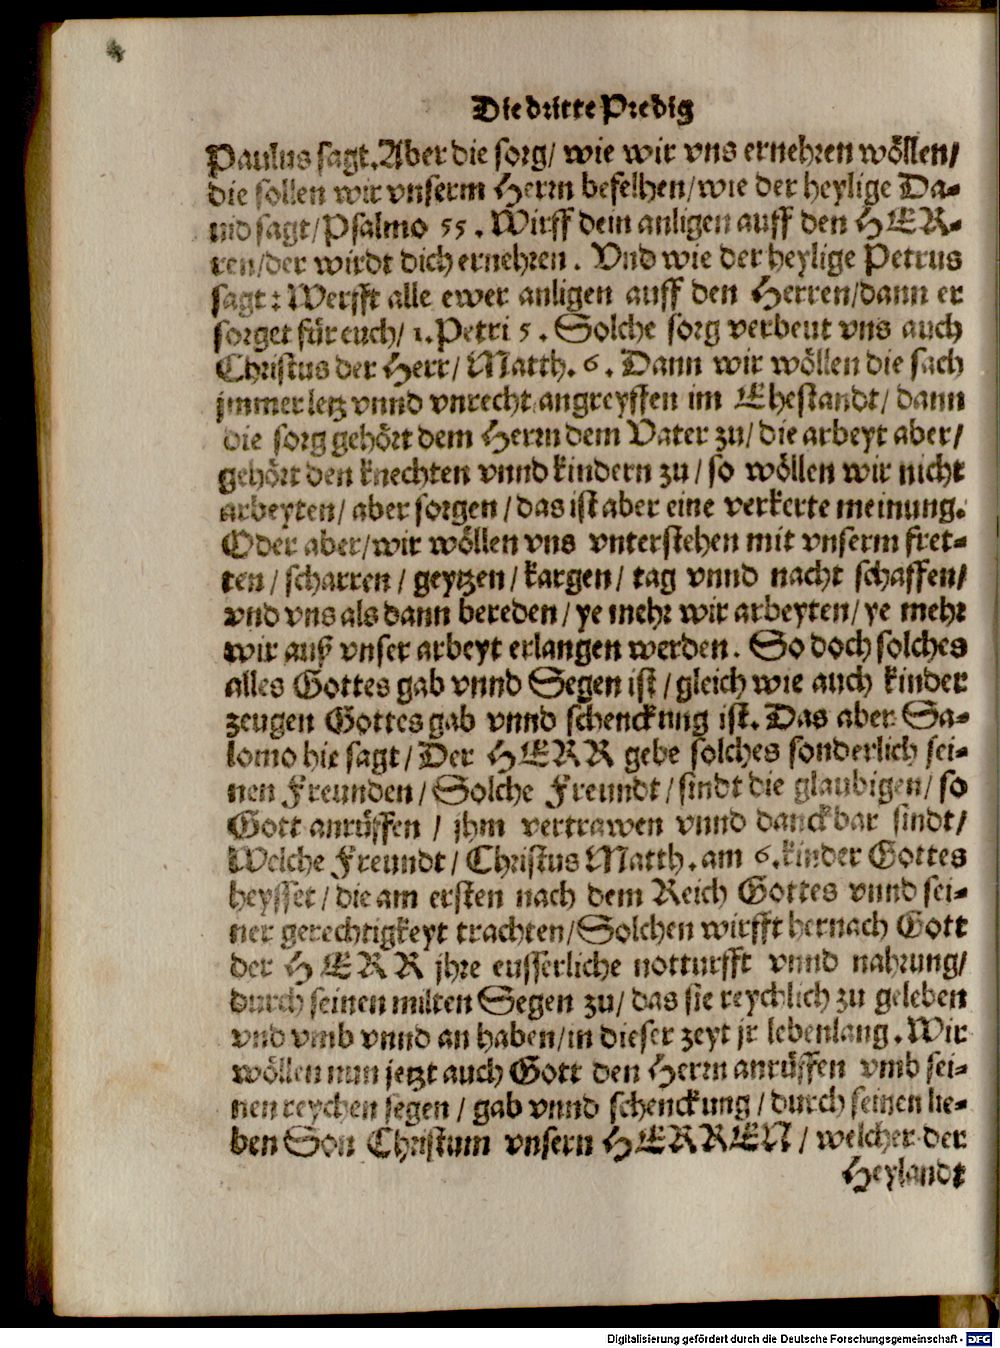 Die dritte Predig
Paulus sagt. Aber die sorg/ wie wir vns ernehren wöllen/
die sollen wir vnserm Herrn befelhen/ wie der heylige Da-
uid sagt/ Psalmo 55. Wirff dein anligen auff den HER-
ren/ der wirdt dich ernehren. Vnd wie der heylige Petrus
sagt: Werfft alle ewer anligen auff den Herren/ dann er
sorget für euch/ 1. Petri 5. Solche sorg verbeut vns auch
Christus der Herr/ Matth. 6. Dann wir wöllen die sach
jmmer letz vnnd vnrecht angreyffen im Ehestandt/ dann
die sorg gehört dem Herrn dem Vater zu/ die arbeyt aber/
gehört den knechten vnnd kindern zu/ so wöllen wir nicht
arbeyten/ aber sorgen/ das ist aber eine verkerte meinung.
Oder aber/ wir wöllen vns vnterstehen mit vnserm fret-
ten/ scharren/ geytzen/ kargen/ tag vnnd nacht schaffen/
vnd vns als dann bereden/ ye mehr wir arbeyten/ ye mehr
wir auß vnser arbeyt erlangen werden. So doch solches
alles Gottes gab vnnd Segen ist/ gleich wie auch kinder
zeugen Gottes gab vnnd schenckung ist. Das aber Sa-
lomo hie sagt/ Der HERR gebe solches sonderlich sei-
nen Freunden/ Solche Freundt/ sindt die glaubigen/ so
Gott anrüffen/ jhm vertrawen vnnd danckbar sindt/
Welche Freundt/ Christus Matth. am 6. kinder Gottes
heysset/ die am ersten nach dem Reich Gottes vnnd sei-
ner gerechtigkeyt trachten/ Solchen wirfft hernach Gott
der HERR jhre eusserliche notturfft vnnd nahrung/
durch seinen milten Segen zu/ das sie reychlich zu geleben
vnd vmb vnnd an haben/ in dieser zeyt jr lebenlang. Wir
wöllen nun jetzt auch Gott den Herrn anrüffen vmb sei-
nen reychen segen/ gab vnnd schenckung/ durch seinen lie-
ben Son Christum vnsern HERREN/ welcher der
Heylandt
Digitalisierung gefördert durch die Deutsche Forschungsgemeinschaft - DFG